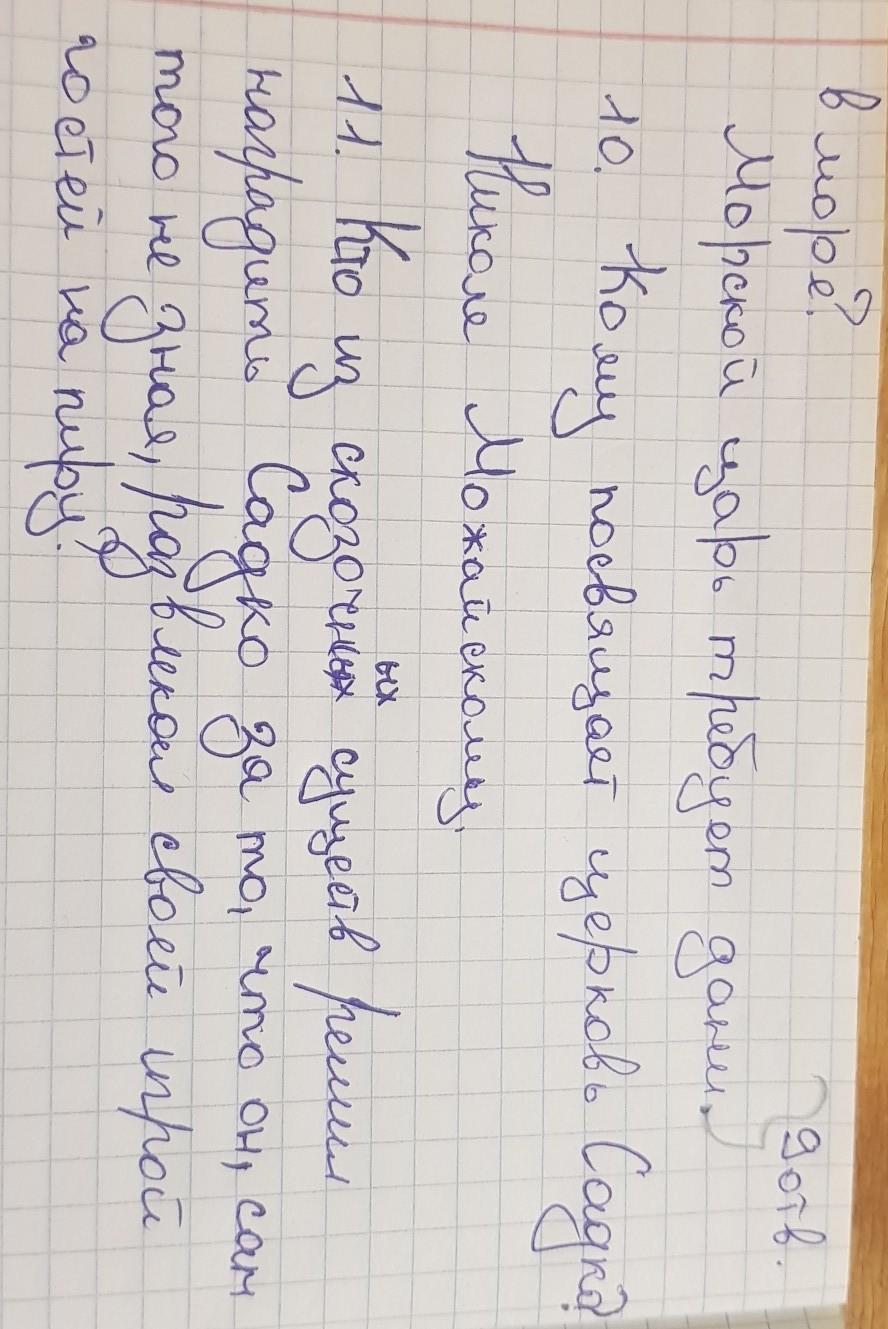 в море?
Морской царь требует дани. } 9 отв.
10. Кому посвящает церковь Садко?
Николе Можайскому.
11. Кто из сказочных существ решил
наградить Садко за то, что он, сам
того не зная, развлекал своей игрой
гостей на пиру?